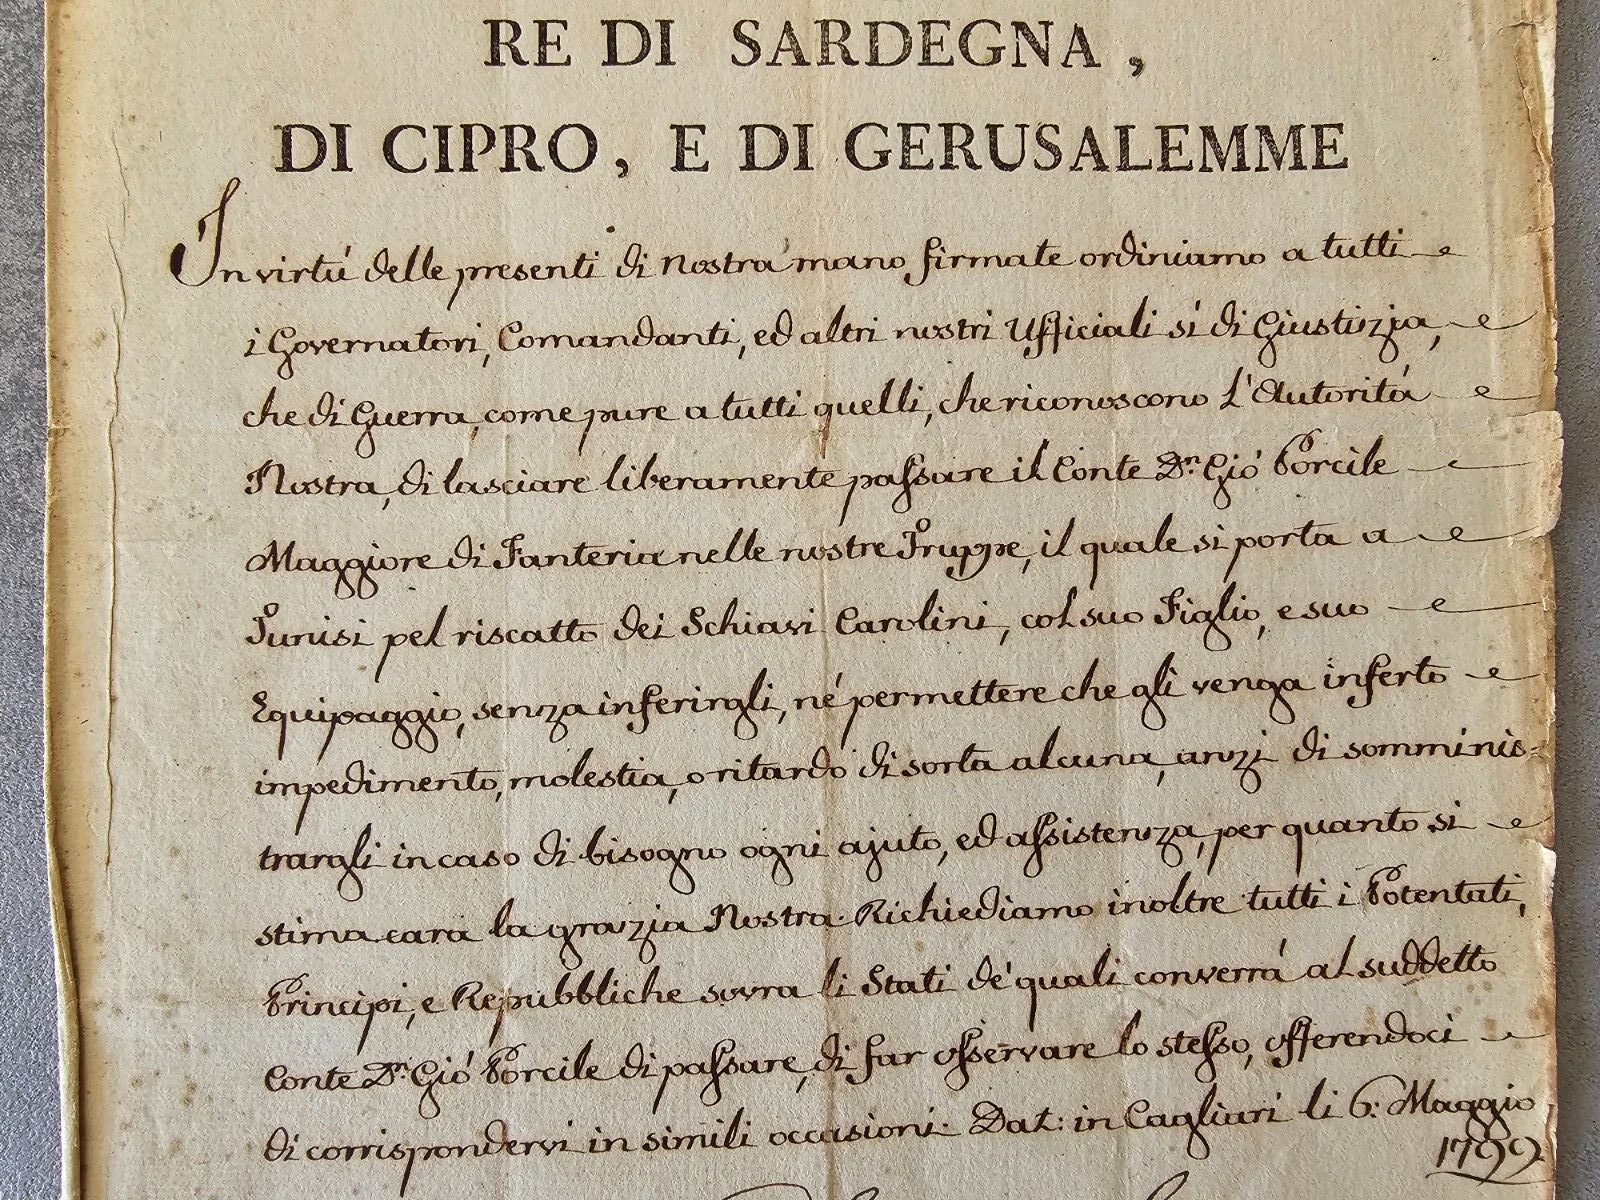 RE DI SARDEGNA,
DI CIPRO, E DI GERUSALEMME
In virtù delle presenti di Nostra mano firmate ordiniamo a tutti
i Governatori, Comandanti, ed altri nostri Ufficiali sì di Giustizia,
che di Guerra, come pure a tutti quelli, che riconoscono l'Autorità
Nostra, di lasciare liberamente passare il Conte Dn. Gio' Porcile
Maggiore di Fanteria nelle nostre Truppe, il quale si porta a
Tunisi pel riscatto dei Schiavi Carolini, col suo Figlio, e suo
Equipaggio, senza inferirgli, nè permettere che gli venga inferto
impedimento, molestia, o ritardo di sorta alcuna, anzi di somminis=
trargli in caso di bisogno ogni ajuto, ed assistenza, per quanto si
stima cara la grazia Nostra. Richiediamo inoltre tutti i Potentati,
Principi, e Repubbliche sovra li Stati de' quali converrà al suddetto
Conte Dn. Gio' Porcile di passare, di far osservare lo stesso, offerendoci
di corrispondervi in simili occasioni. Dat: in Cagliari li 6: Maggio
1799